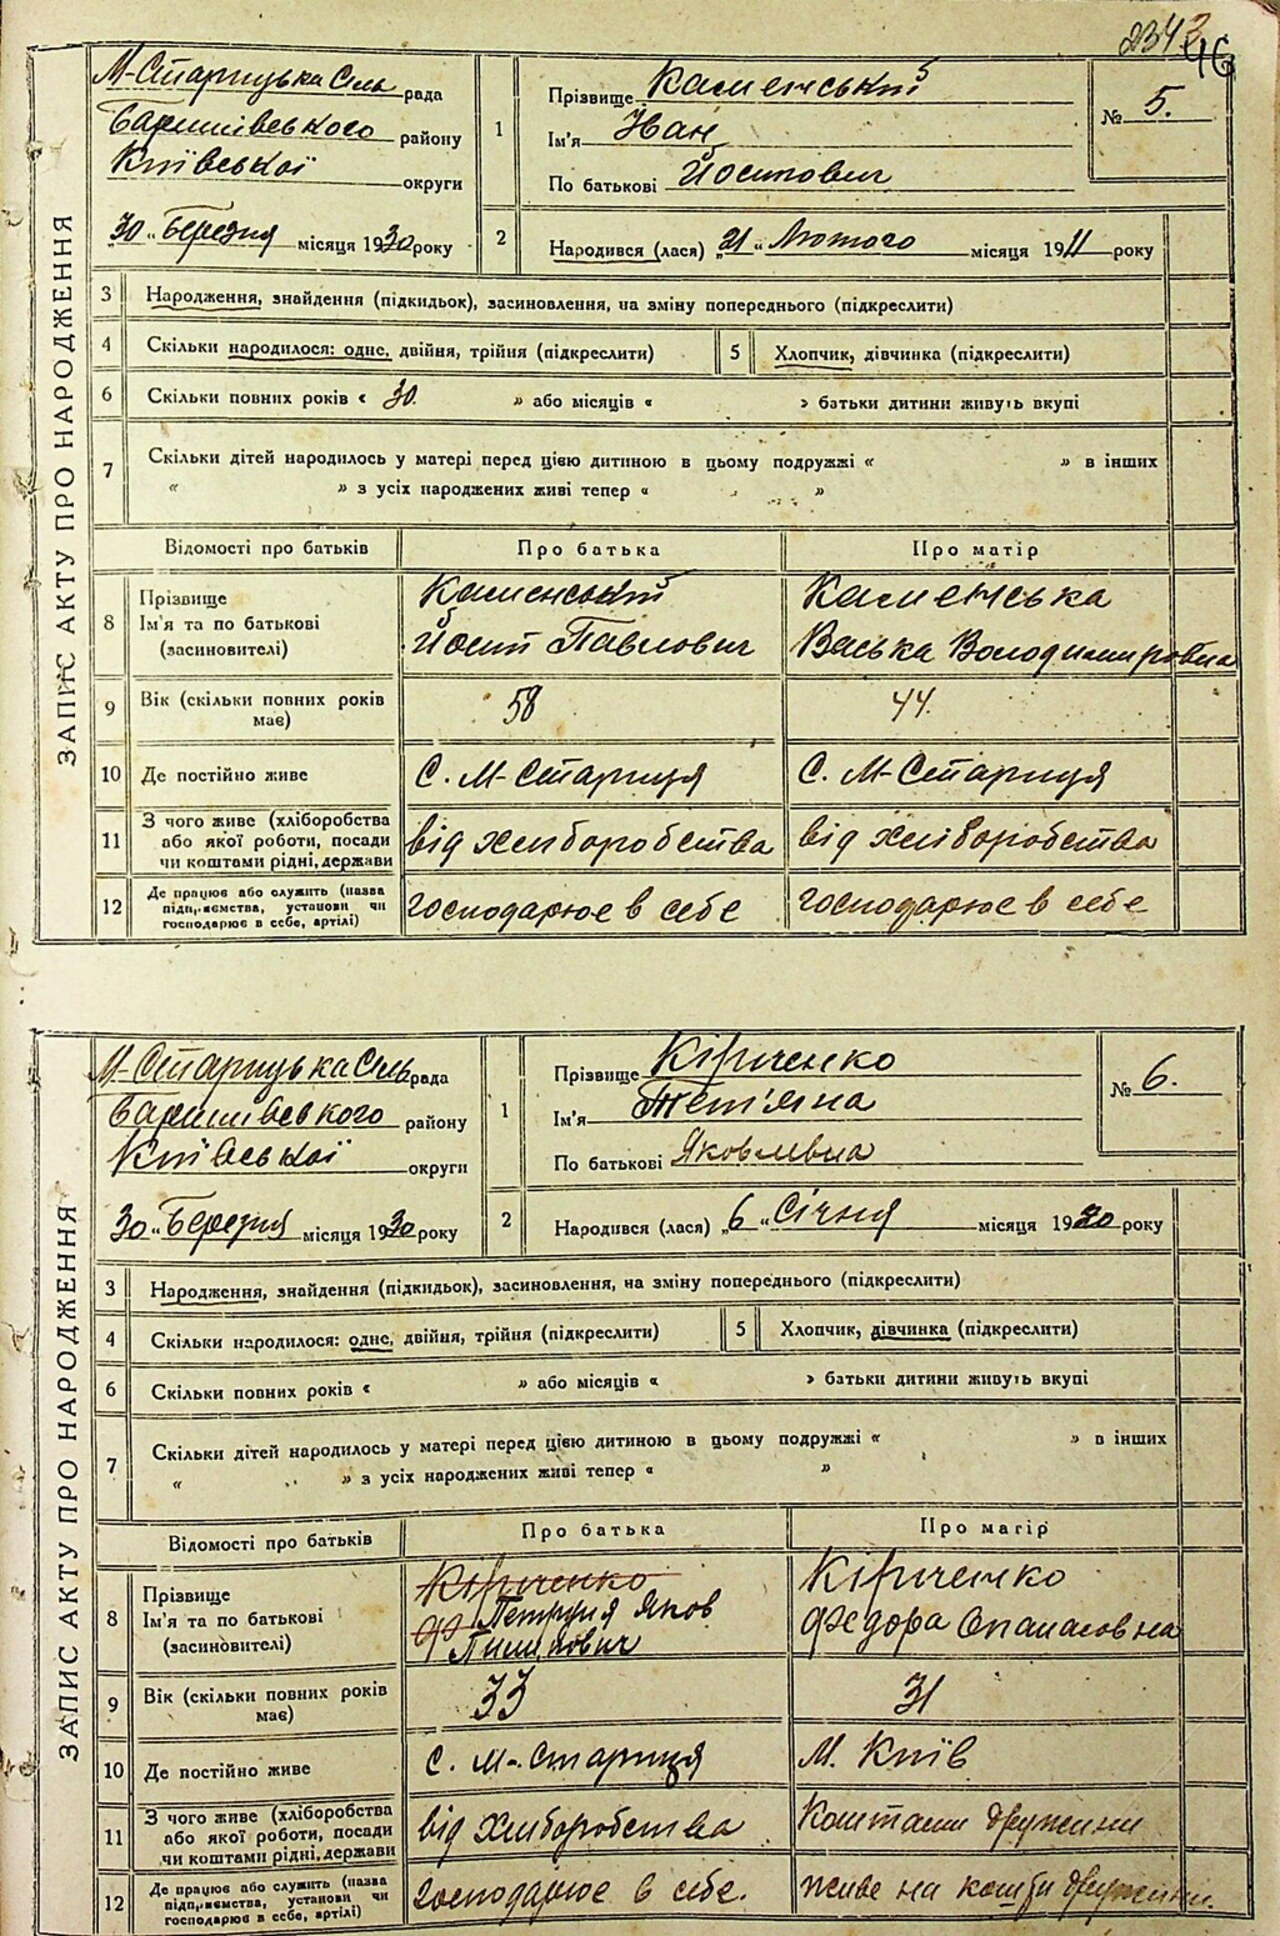 2343
46
ЗАПИС АКТУ ПРО НАРОДЖЕННЯ
М-Старицька Сіль рада
Баришівського району
Київської округи
„30“ Березня місяця 1930 року
1
Прізвище Каменський
Ім'я Іван
По батькові Йосипович
№ 5.
2
Народився (лася) „21“ Лютого місяця 1911 року
3 Народження, знайдення (підкидьок), засиновлення, на зміну попереднього (підкреслити)
4 Скільки народилося: одне, двійня, трійня (підкреслити) 5 Хлопчик, дівчинка (підкреслити)
6 Скільки повних років « 30 » або місяців « » батьки дитини живуть вкупі
7 Скільки дітей народилось у матері перед цією дитиною в цьому подружжі « » в інших
« » з усіх народжених живі тепер « »
Відомості про батьків Про батька Про матір
8 Прізвище Ім'я та по батькові (засиновителі)
Каменський Йосип Павлович
Каменська Васька Володимировна
9 Вік (скільки повних років має) 58 44.
10 Де постійно живе С. М-Стариця С. М-Стариця
11 З чого живе (хліборобства або якої роботи, посади чи коштами рідні, держави
від хліборобства від хліборобства
12 Де працює або служить (назва підприємства, установи чи господарює в себе, артілі)
господарює в себе господарює в себе
ЗАПИС АКТУ ПРО НАРОДЖЕННЯ
М-Старицька Сіль рада
Баришівського району
Київської округи
30“ Березня місяця 1930 року
1
Прізвище Кіриченко
Ім'я Тет'яна
По батькові Яковлевна
№ 6.
2
Народився (лася) „6“ Січня місяця 1920 року
3 Народження, знайдення (підкидьок), засиновлення, на зміну попереднього (підкреслити)
4 Скільки народилося: одне, двійня, трійня (підкреслити) 5 Хлопчик, дівчинка (підкреслити)
6 Скільки повних років « » або місяців « » батьки дитини живуть вкупі
7 Скільки дітей народилось у матері перед цією дитиною в цьому подружжі « » в інших
« » з усіх народжених живі тепер « »
Відомості про батьків Про батька Про матір
8 Прізвище Ім'я та по батькові (засиновителі)
Кіриченко
Яков
Пилипович
Кіриченко
Федора Опанасовна
9 Вік (скільки повних років має) 33 31
10 Де постійно живе с. М-Стариця М. Київ
11 З чого живе (хліборобства або якої роботи, посади чи коштами рідні, держави
від хліборобства Коштами дружини
12 Де працює або служить (назва підприємства, установи чи господарює в себе, артілі)
господарює в себе. живе на кошти дружини.